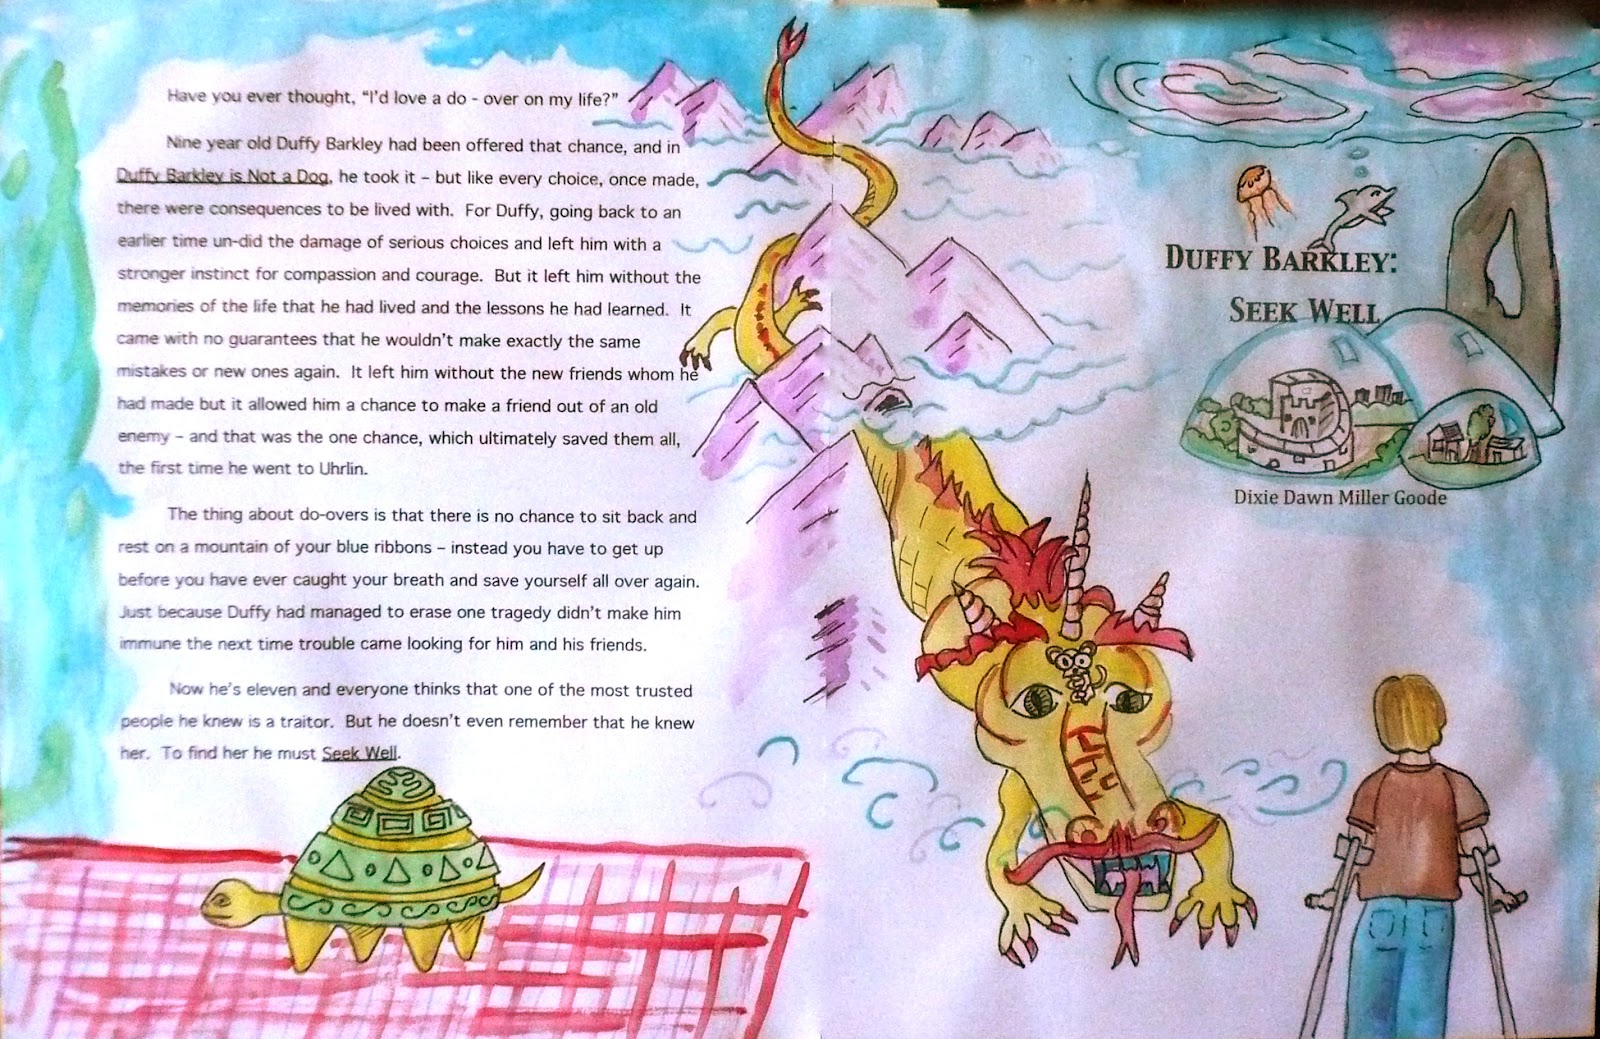 Have you ever thought, “I’d love a do - over on my life?”
Nine year old Duffy Barkley had been offered that chance, and in
Duffy Barkley is Not a Dog, he took it – but like every choice, once made,
there were consequences to be lived with.  For Duffy, going back to an
earlier time un-did the damage of serious choices and left him with a
stronger instinct for compassion and courage.  But it left him without the
memories of the life that he had lived and the lessons he had learned.  It
came with no guarantees that he wouldn’t make exactly the same
mistakes or new ones again.  It left him without the new friends whom he
had made but it allowed him a chance to make a friend out of an old
enemy – and that was the one chance, which ultimately saved them all,
the first time he went to Uhrlin.
The thing about do-overs is that there is no chance to sit back and
rest on a mountain of your blue ribbons – instead you have to get up
before you have ever caught your breath and save yourself all over again.
Just because Duffy had managed to erase one tragedy didn’t make him
immune the next time trouble came looking for him and his friends.
Now he’s eleven and everyone thinks that one of the most trusted
people he knew is a traitor.  But he doesn’t even remember that he knew
her.  To find her he must Seek Well.
DUFFY BARKLEY:
SEEK WELL
Dixie Dawn Miller Goode